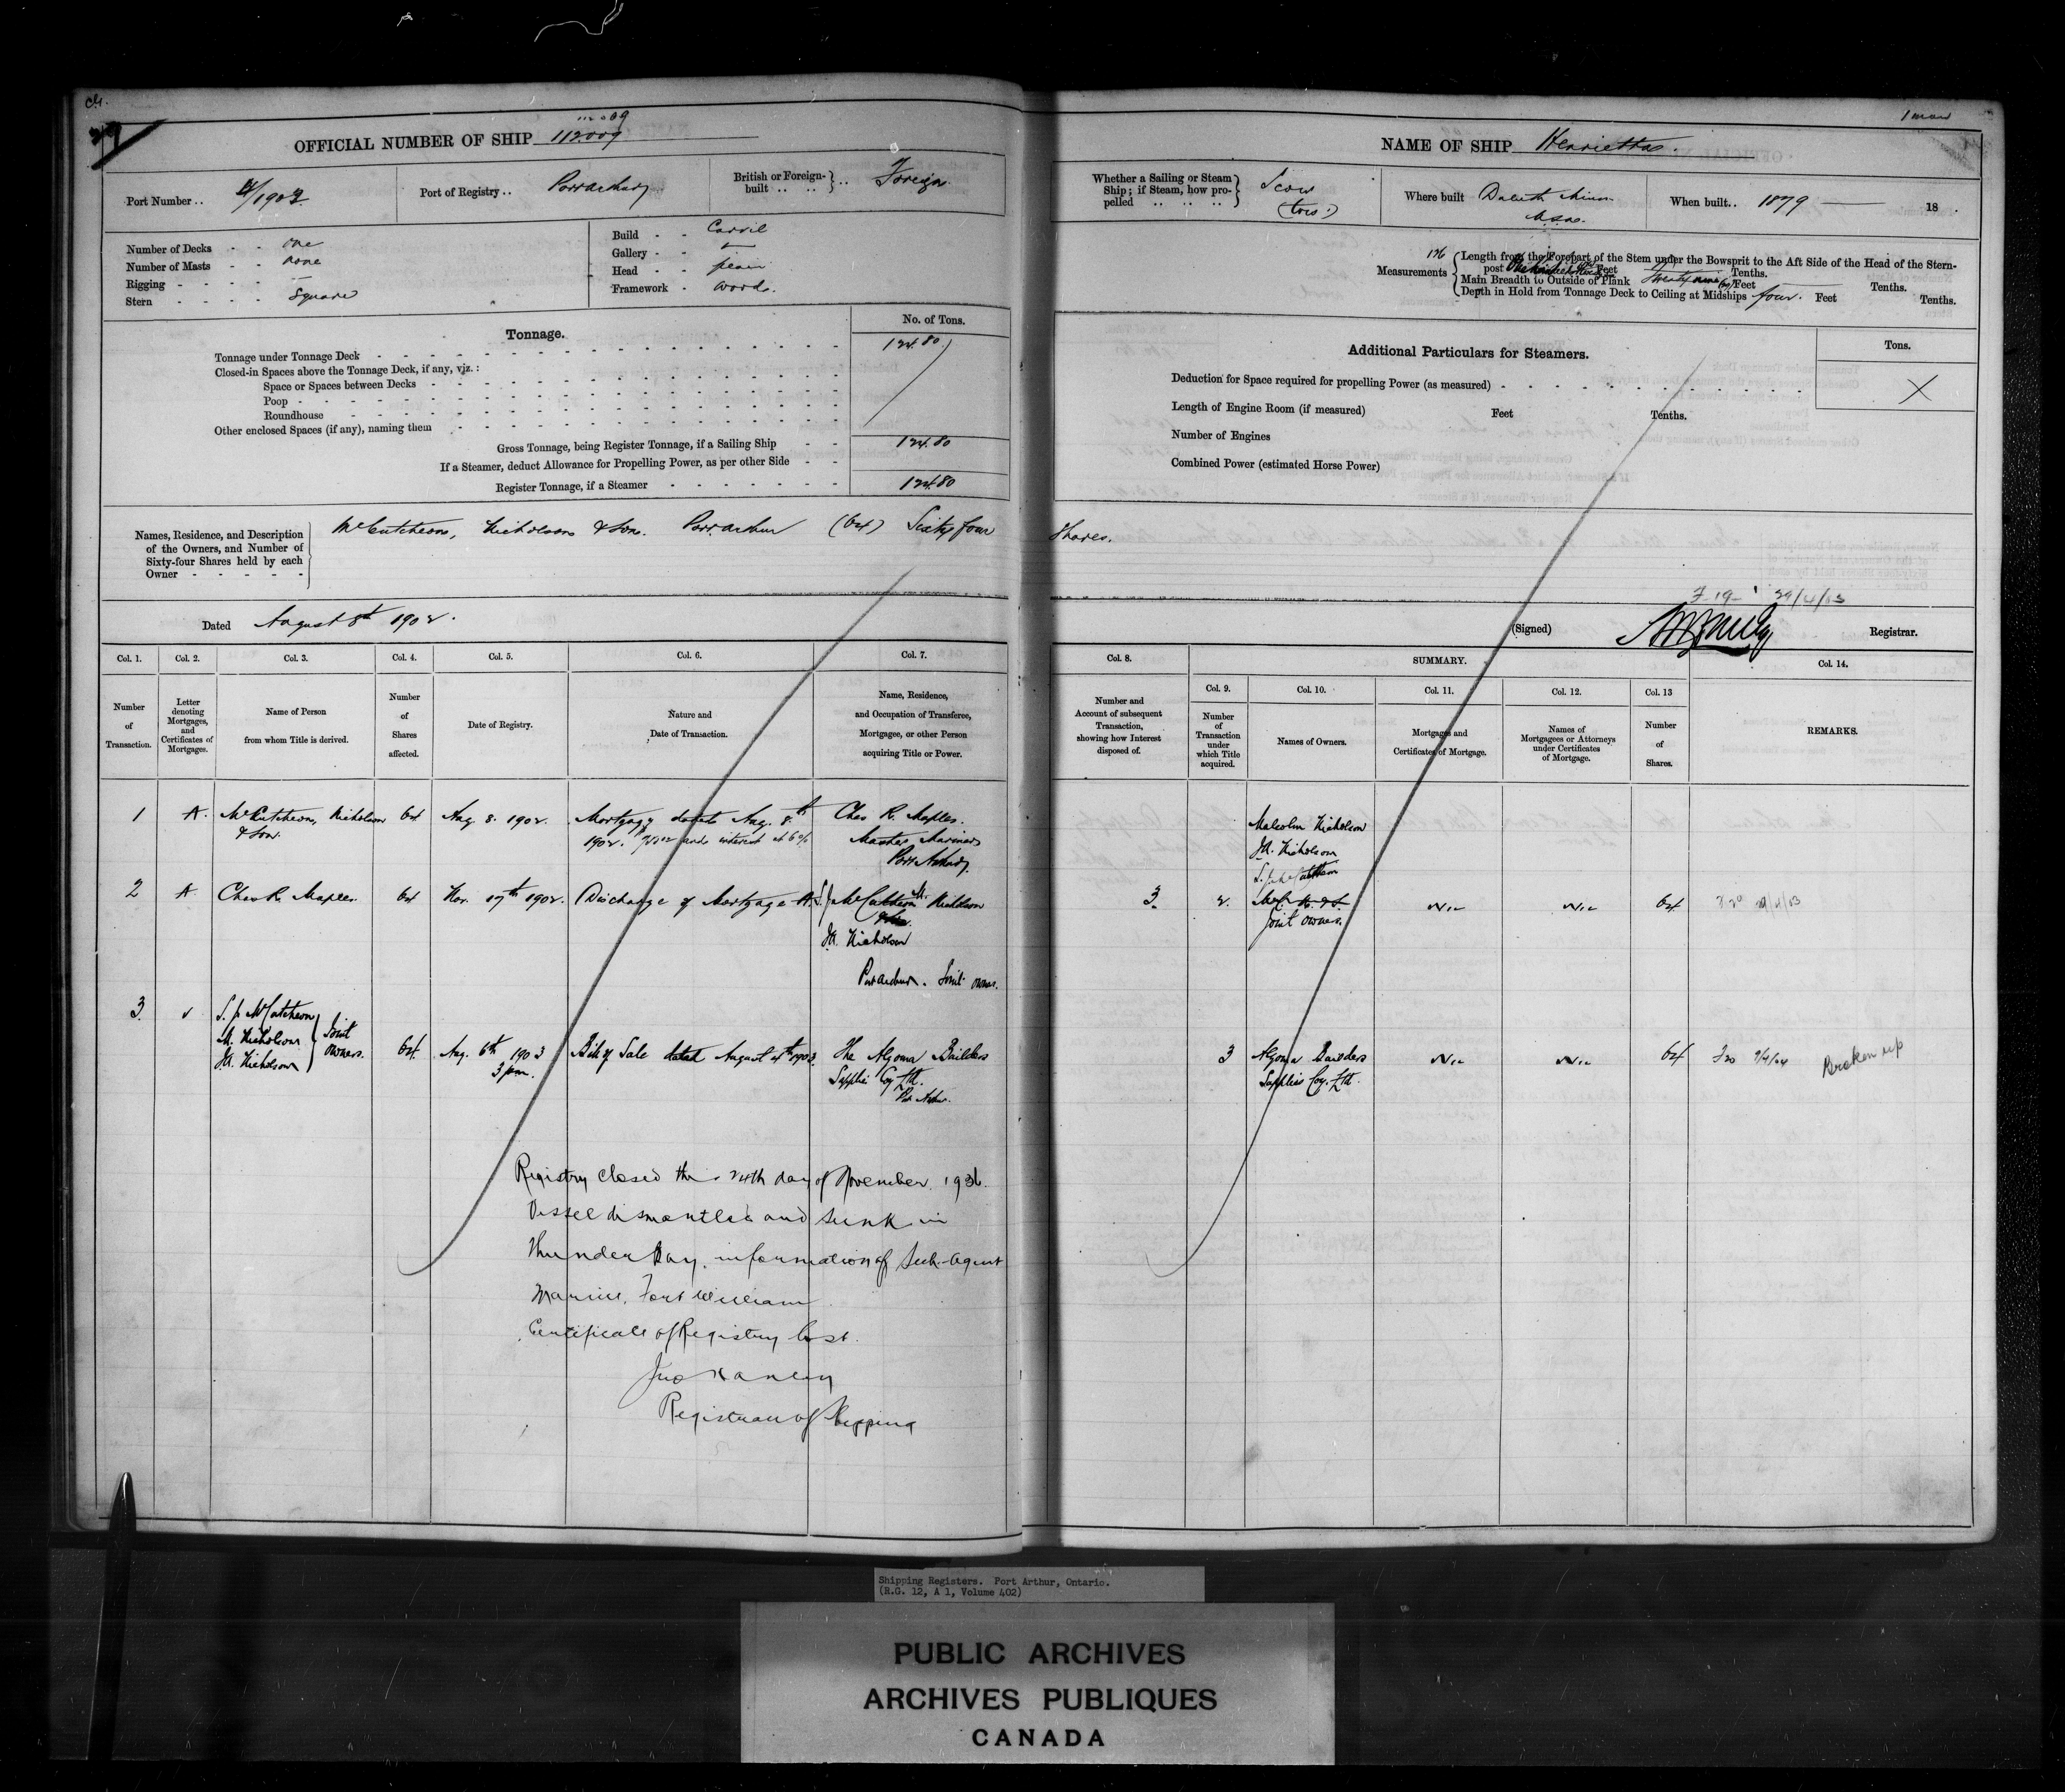 OFFICIAL NUMBER OF SHIP 112009
112009
Port Number ..
Port of Registry .. Port Arthur
British or Foreign-built .. .. } .. Foreign
Number of Decks - - one
Number of Masts - - none
Rigging - - - - —
Stern - - - - Square
Build - - Carvil
Gallery - - —
Head - -
Framework - Wood.
Tonnage.
No. of Tons.
Tonnage under Tonnage Deck 124.80
Closed-in Spaces above the Tonnage Deck, if any, viz. :
Space or Spaces between Decks
Poop
Roundhouse
Other enclosed Spaces (if any), naming them
Gross Tonnage, being Register Tonnage, if a Sailing Ship 124.80
If a Steamer, deduct Allowance for Propelling Power, as per other Side
Register Tonnage, if a Steamer 124.80
Names, Residence, and Description of the Owners, and Number of Sixty-four Shares held by each Owner
McCutcheon, Nicholson & Son. Port Arthur (64) Sixty four
Dated August 8th 1902.
Col. 1. Col. 2. Col. 3. Col. 4. Col. 5. Col. 6. Col. 7.
Number of Transaction.
Letter denoting Mortgages, and Certificates of Mortgages.
Name of Person from whom Title is derived.
Number of Shares affected.
Date of Registry.
Nature and Date of Transaction.
Name, Residence, and Occupation of Transferee, Mortgagee, or other Person acquiring Title or Power.
1 A. McCutcheon, Nicholson 64 Aug 8. 1902. Mortgage dated Aug. 8th Chas R. Maples.
& Son. 1902. and interest at 6% Master Mariner
Port Arthur
2 A Chas R. Maples. 64 Nov. 17th 1902. Discharge of Mortgage A. S. J. McCutcheon M. Nicholson
J.A. Nicholson
Port Arthur. Joint owners.
3 S. J. McCutcheon
M. Nicholson } Joint
J.A. Nicholson owners.
64 Aug. 6th 1903 Bill of Sale dated August 4th 1903 The Algoma Builders
3 pm. Supplies Coy Ltd.
Port Arthur.
Registry closed this 24th day of November 1936.
Vessel dismantled and sunk in
Thunder Bay. information of Sub-Agent
Marine, Fort William
Certificate of Registry lost.
Registrar of Shipping
NAME OF SHIP Henrietta.
Whether a Sailing or Steam Ship; if Steam, how propelled .. .. .. } Scow
Where built Duluth Minn
U.S.A.
When built.. 1879 — 18
Measurements
Length from the Forepart of the Stem under the Bowsprit to the Aft Side of the Head of the Stern-
post Feet Tenths.
Main Breadth to Outside of Plank Feet Tenths.
Depth in Hold from Tonnage Deck to Ceiling at Midships four. Feet Tenths.
Additional Particulars for Steamers.
Tons.
Deduction for Space required for propelling Power (as measured) X
Length of Engine Room (if measured) Feet Tenths.
Number of Engines
Combined Power (estimated Horse Power)
Shares.
29/4/03
(Signed) Registrar.
Col. 8. SUMMARY. Col. 14.
Col. 9. Col. 10. Col. 11. Col. 12. Col. 13
Number and Account of subsequent Transaction, showing how Interest disposed of.
Number of Transaction under which Title acquired.
Names of Owners.
Mortgages and Certificates of Mortgage.
Names of Mortgagees or Attorneys under Certificates of Mortgage.
Number of Shares.
REMARKS.
Malcolm Nicholson
J.A. Nicholson
S. J. McCutcheon
3. 2. Nil Nil 64
Joint owners.
3 Algoma Builders Nil Nil 64 Broken up
Supplies Coy. Ltd.
Shipping Registers. Port Arthur, Ontario.
(R.G. 12, A 1, Volume 402)
PUBLIC ARCHIVES
ARCHIVES PUBLIQUES
CANADA